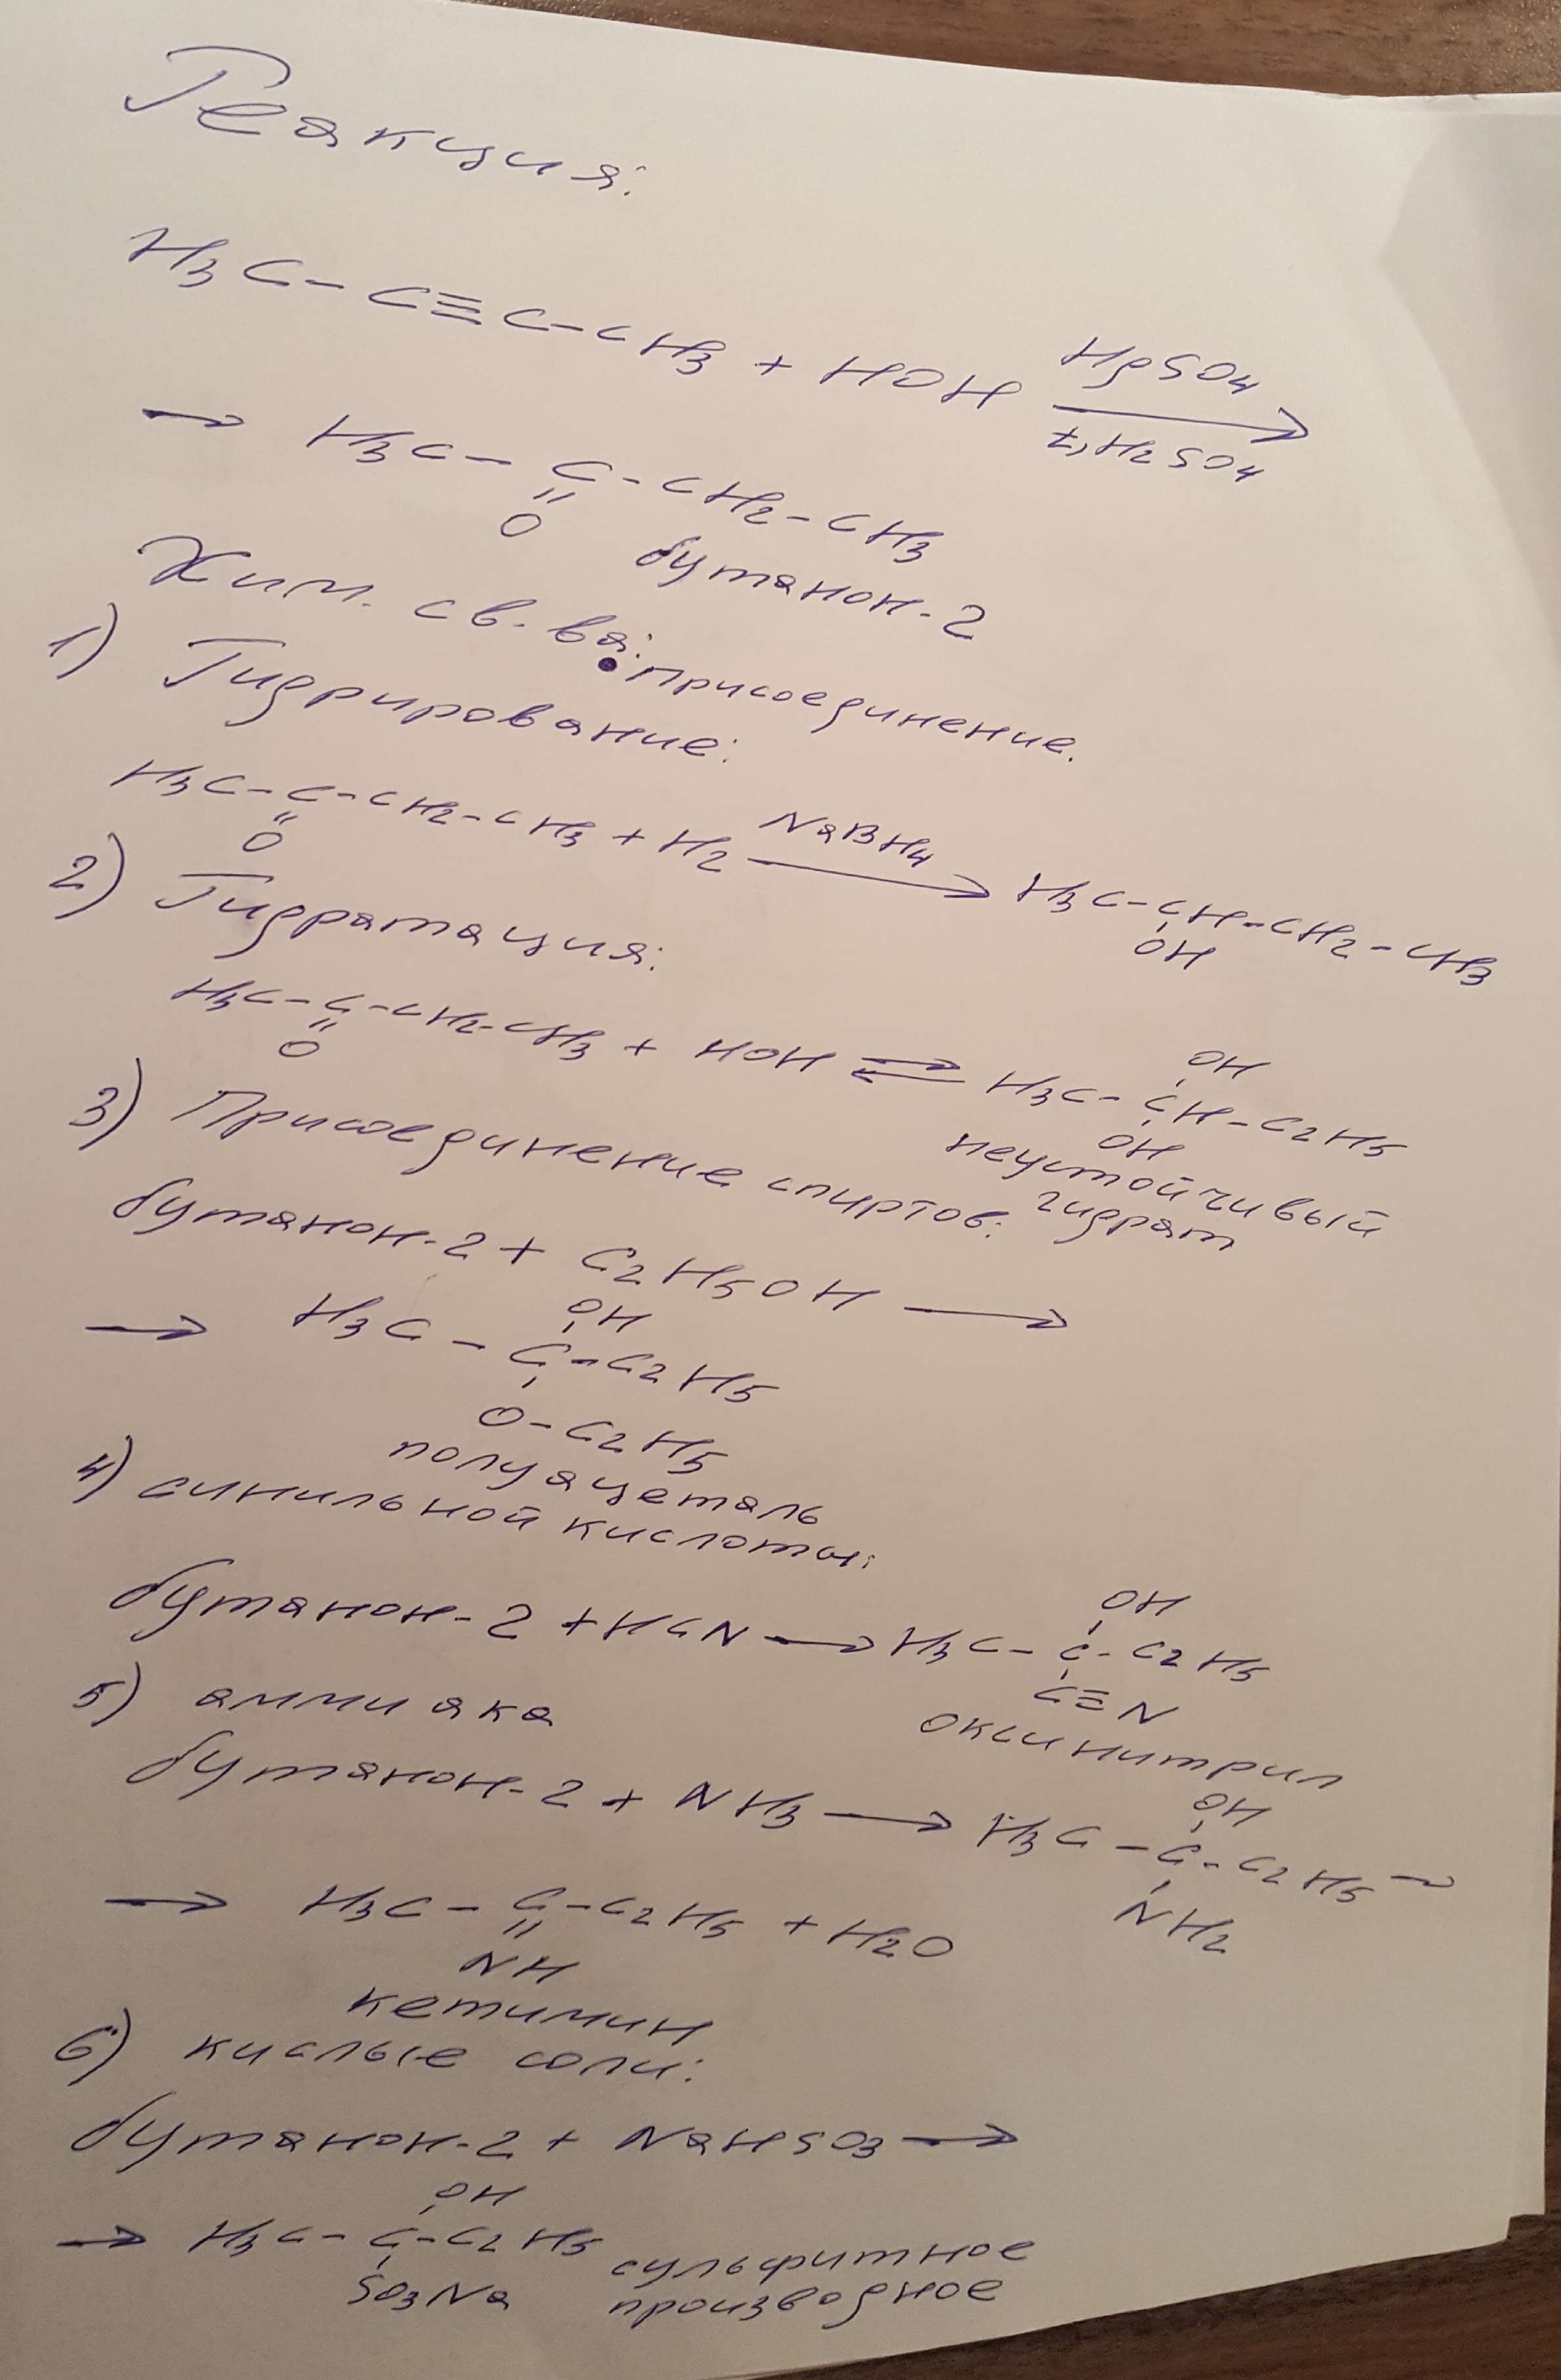 Реакция:
H3C-C≡C-CH3 + HOH HgSO4 →
t, H2SO4
→ H3C-C-CH2-CH3
=
O
бутанон-2
Хим. св. ва: присоединение.
1) Гидрирование:
H3C-C-CH2-CH3 + H2 NaBH4 → H3C-CH-CH2-CH3
O OH
2) Гидратация:
OH
H3C-C-CH2-CH3 + HOH ⇄ H3C-CH-C2H5
O OH
неустойчивый
гидрат
3) Присоединение спиртов:
бутанон-2 + C2H5OH →
OH
→ H3C-C-C2H5
O-C2H5
полуацеталь
4) синильной кислоты:
OH
бутанон-2 + HCN → H3C-C-C2H5
C≡N
оксинитрил
5) аммиака
OH
бутанон-2 + NH3 → H3C-C-C2H5 →
NH2
→ H3C-C-C2H5 + H2O
NH
кетимин
6) кислые соли:
бутанон-2 + NaHSO3 →
OH
→ H3C-C-C2H5 сульфитное
SO3Na производное